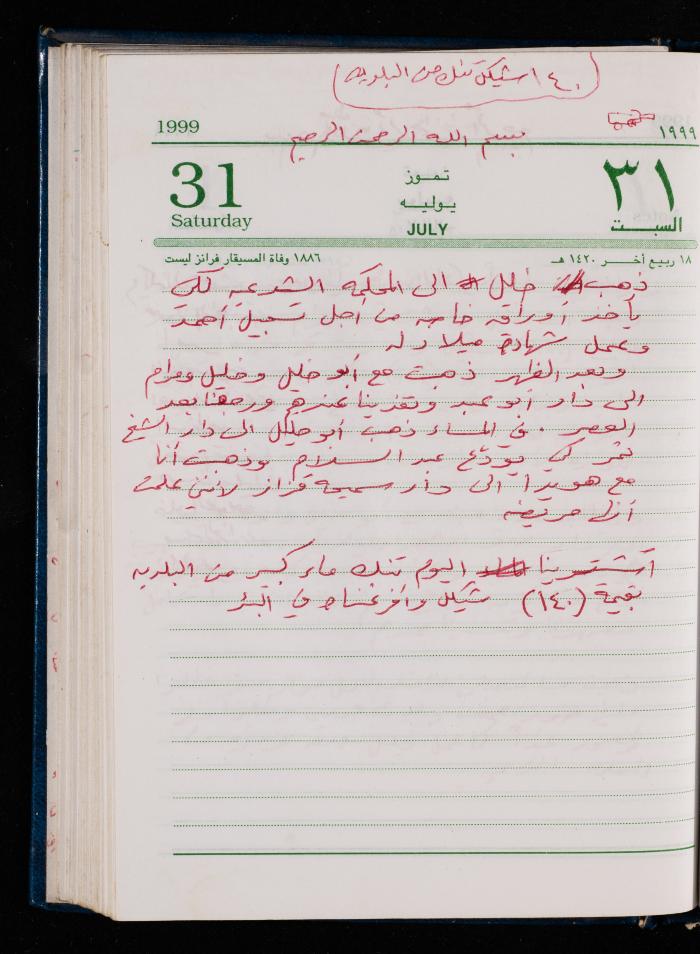 ١٤٠ شيكل تنك من البلديه
1999
بسم الله الرحمن الرحيم
١٩٩٩
31
Saturday
تمـوز
يوليـه
JULY
٣١
السبـت
١٨ ربيع آخـر ١٤٢٠ هـ
١٨٨٦ وفاة المسيقار فرانز ليست
ذهب خليل الى المحكمه الشرعيه لكي
يأخذ أوراقه خاصه من أجل تسجيل أحمد
وعمل شهادة ميلاد له
وبعد الظهر ذهبت مع أبو خليل وخليل ومرام
الى دار أبو عبد وتغذينا عندهم ورجعنا بعد
العصر . في المساء ذهب أبو خليل الى دار الشيخ
نمر كي يودّع عبد السلام وذهبت أنا
مع هويدا الى دار سميحة قزاز لأنني علمت
أنها مريضه
اشترينا اليوم تنك ماء كبير من البلديه
بقيمة (١٤٠) شيكل وأفرغناه في البئر